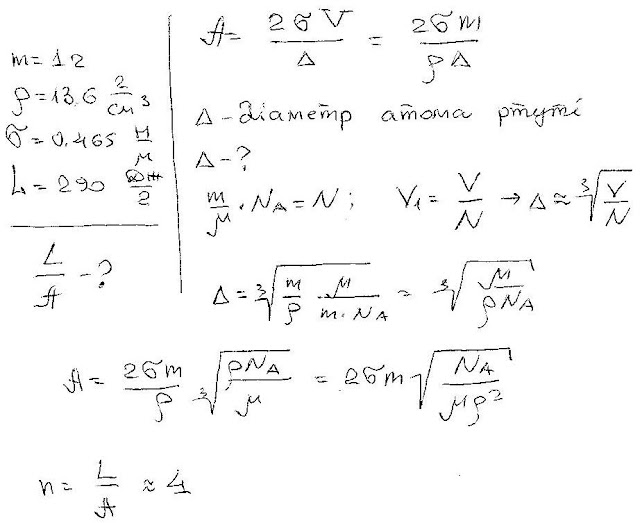 m = 1 г
ρ = 13.6 г/см³
σ = 0.465 Н/м
L = 290 Дж/г
L/A - ?
A = 2σV/Δ = 2σm/ρΔ
Δ - діаметр атома ртуті
Δ - ?
m/μ · N_A = N ; V₁ = V/N → Δ ≈ ∛(V/N)
Δ = ∛(m/ρ · μ/(m · N_A)) = ∛(μ/(ρN_A))
A = 2σm/ρ ∛(ρN_A/μ) = 2σm √(N_A/(μρ²))
n = L/A ≈ 4